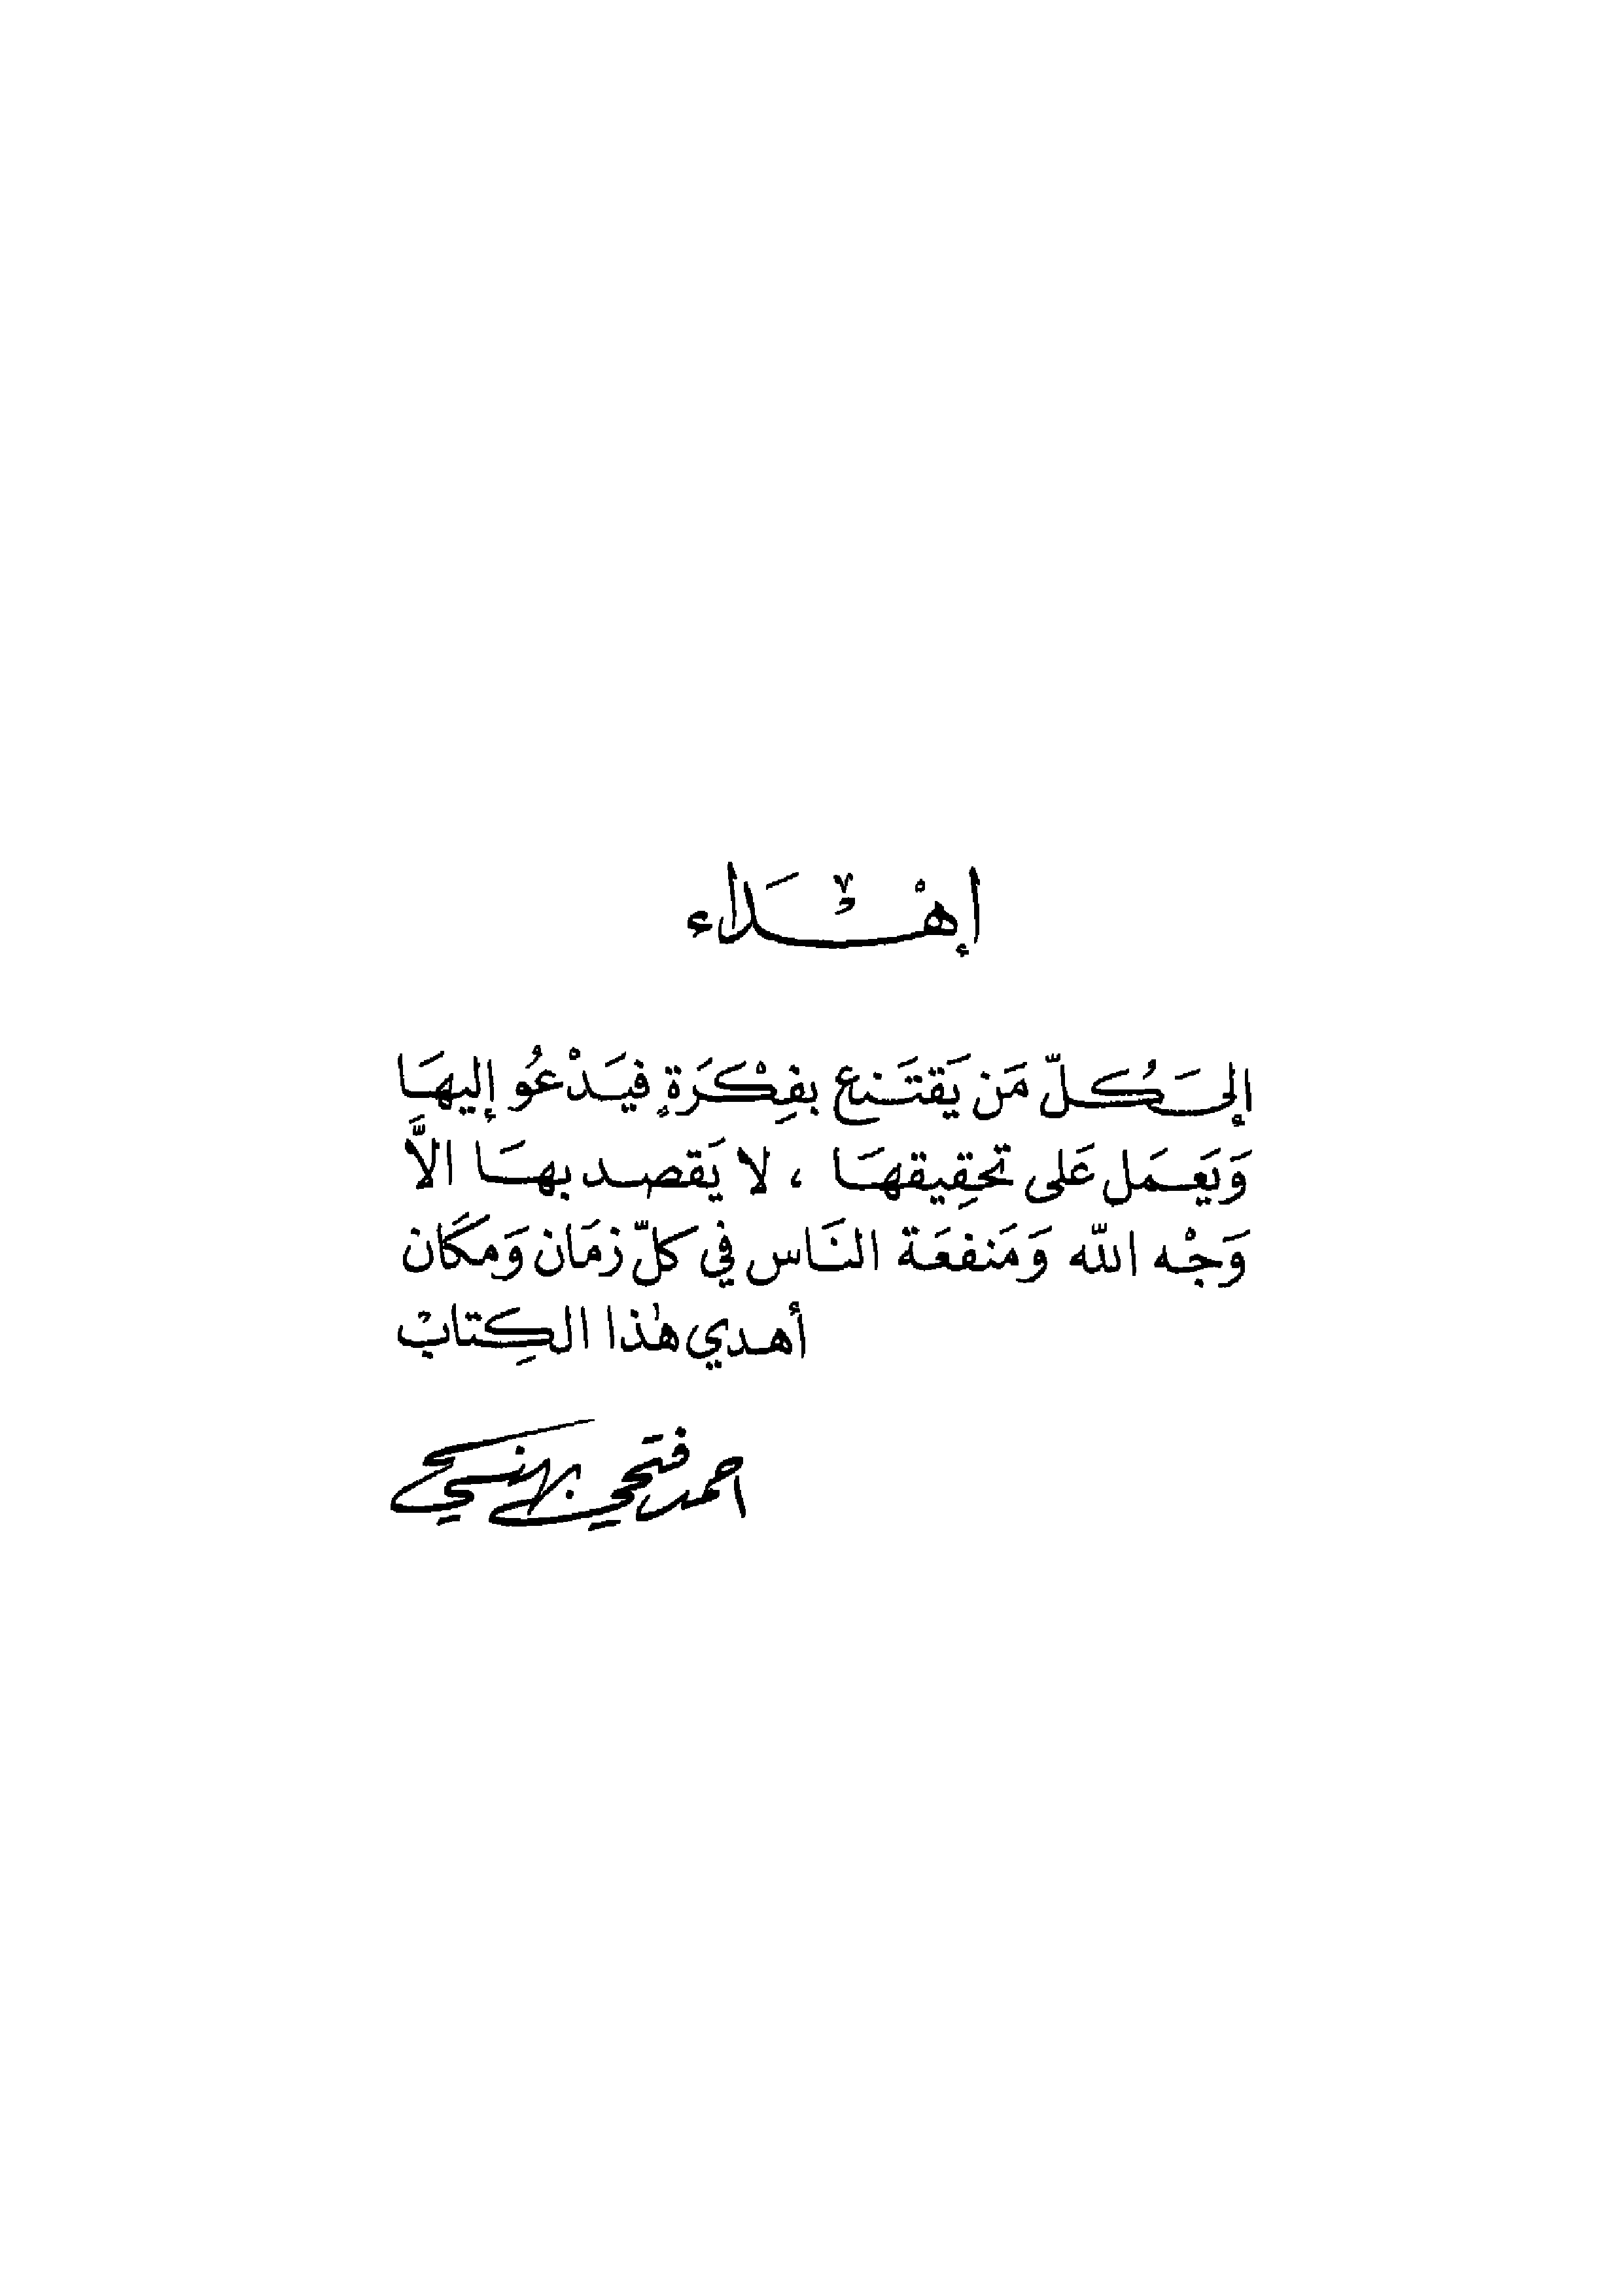 إهْدَاء
إلى كُلّ مَن يَقتَنع بفِكْرَةٍ فيَدْعُو إليهَا
وَيَعمَل عَلى تحقِيقهَا ، لا يَقصد بهَا الاَّ
وَجْه الله وَمَنفعَة النَاس في كلّ زمَان وَمكَان
أهدي هٰذا الكِتابْ
احمد فتحي بهنسي